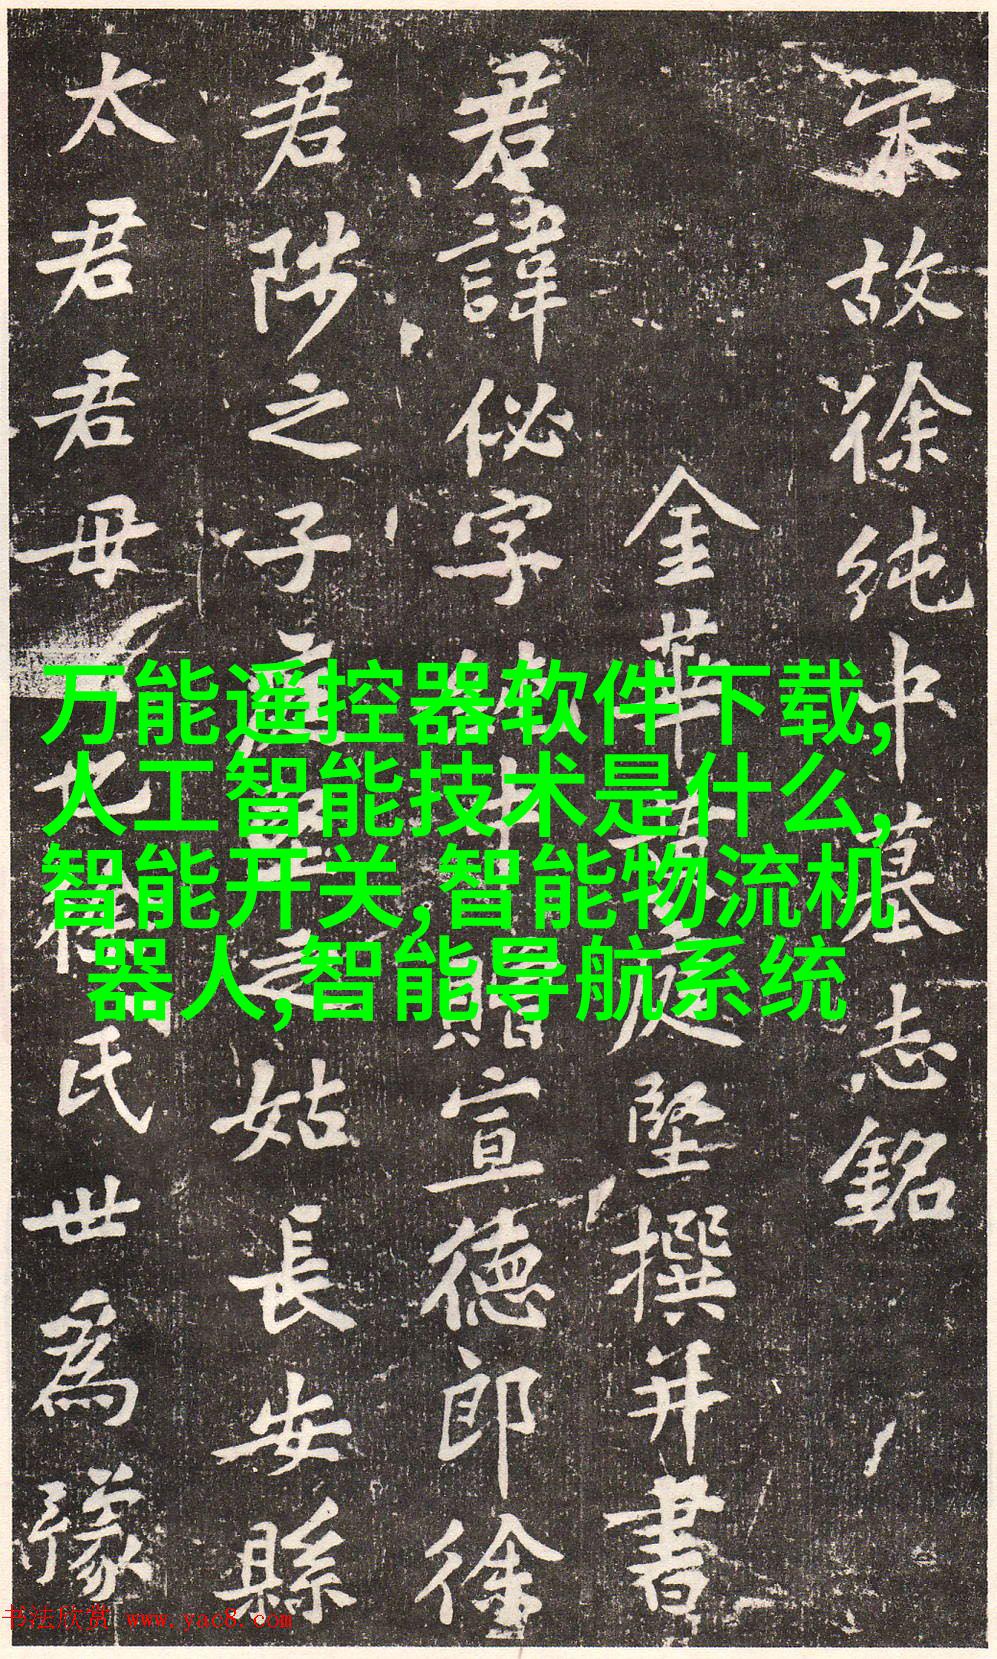 宋故徐纯中墓志銘
金華黄庭堅撰并書
君諱佖字
贈宣德郎徐
君陟之子
之姑長安縣
太君君母
氏世為豫
万能遥控器软件下载,
人工智能技术是什么,
智能开关,智能物流机
器人,智能导航系统
书法欣赏 www.yac8.com